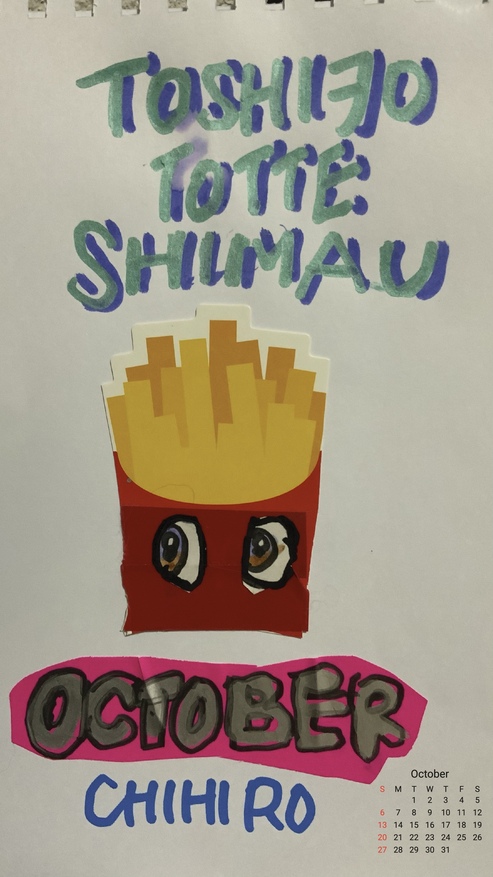 TOSHIヨO
TOTTE
SHIIMAU
OCTOBER
CHIHIRO
October
S M T W T F S
1 2 3 4 5
6 7 8 9 10 11 12
13 14 15 16 17 18 19
20 21 22 23 24 25 26
27 28 29 30 31